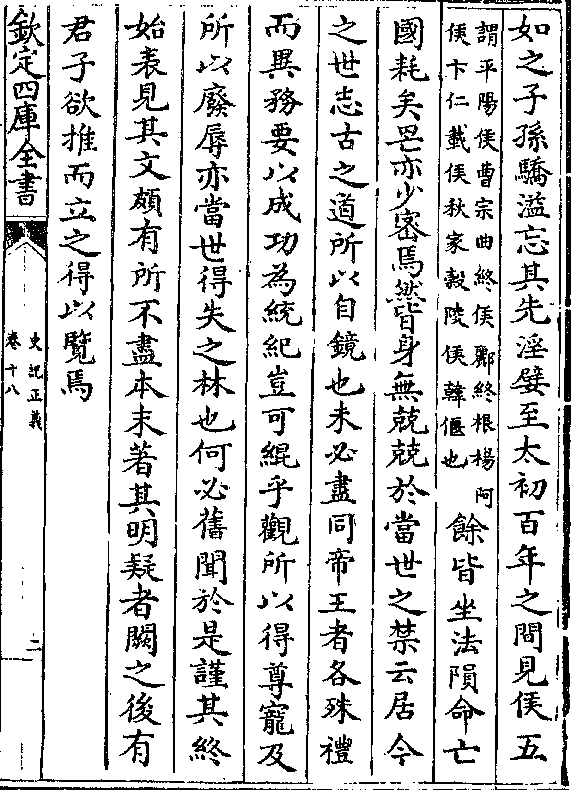 如之子孫驕溢忘其先淫嬖至太初百年之間見侯五
謂平陽侯曹宗曲終侯酈終根楊阿
侯卞仁戴侯秋家穀陵侯韓偃也
餘皆坐法隕命亡
國耗矣罔亦少密焉然皆身無兢兢於當世之禁云居今
之世志古之道所以自鏡也未必盡同帝王者各殊禮
而異務要以成功為統紀豈可緄乎觀所以得尊寵及
所以廢辱亦當世得失之林也何必舊聞於是謹其終
始表見其文頗有所不盡本末著其明疑者闕之後有
君子欲推而立之得以覽焉
欽定四庫全書
史記正義
卷十八
二